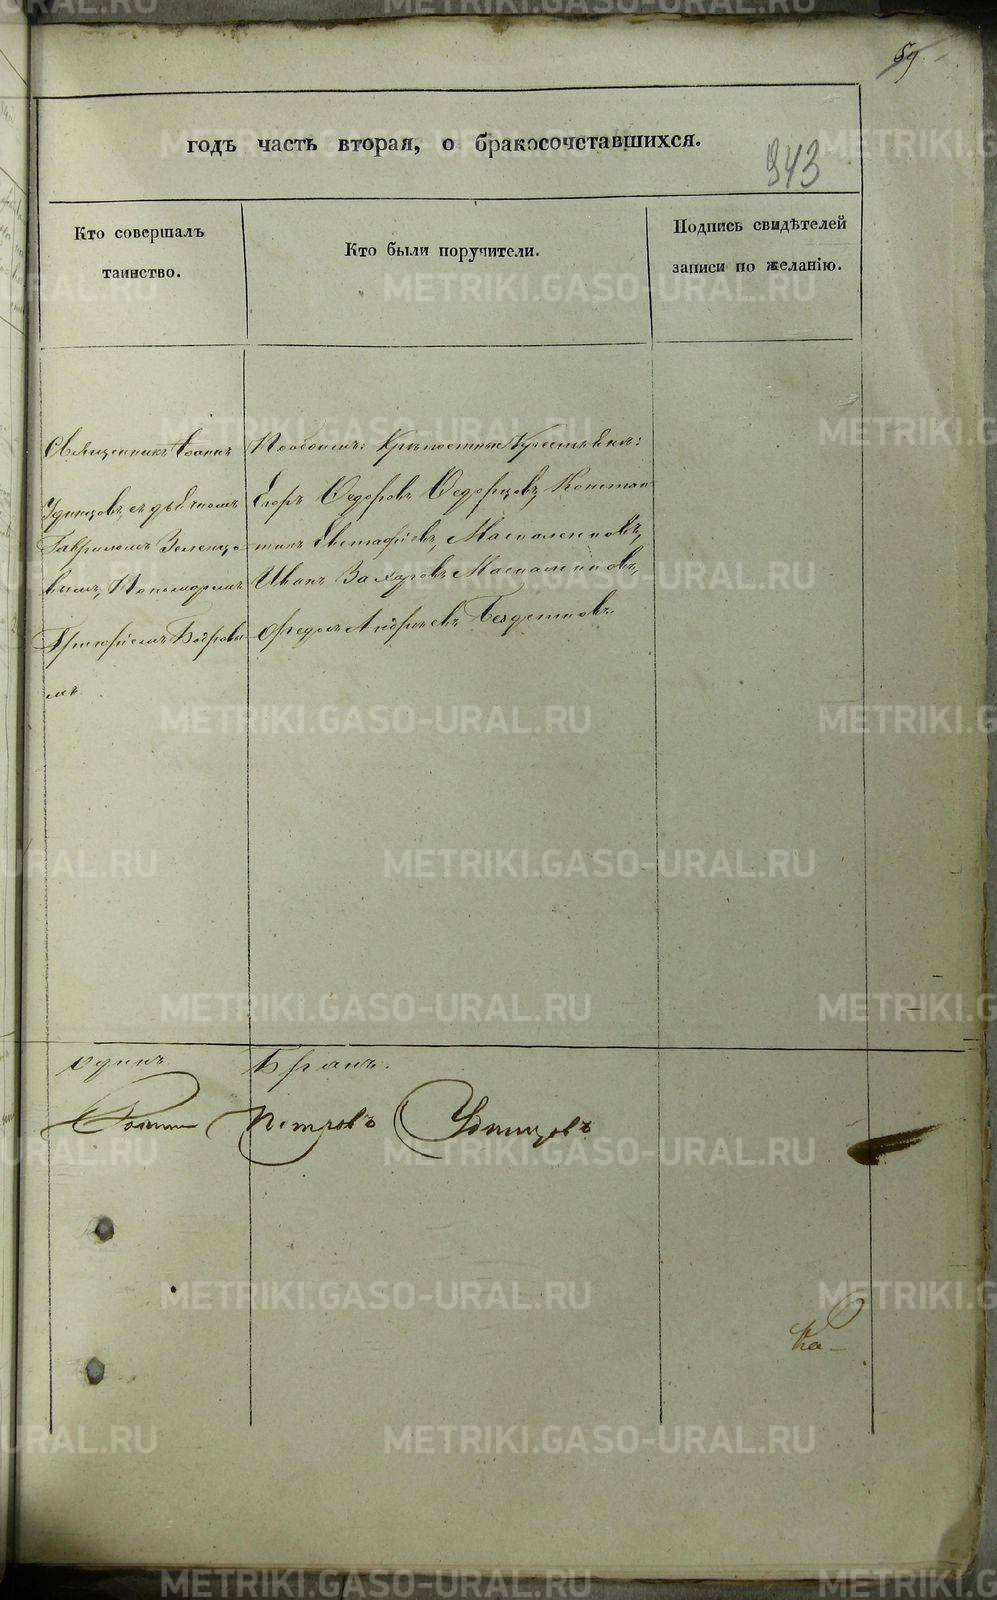 59
годъ часть вторая, о бракосочетавшихся.
343
Кто совершалъ
таинство.
Кто были поручители.
Подпись свидѣтелей
записи по желанію.
Священникъ Іоаннъ
Удинцовъ, съ дьячкомъ
Гавріиломъ Зеленцо
вымъ, Пономаремъ
Бобровы
мъ
Пообоимъ: Крѣпостные Крестьяне:
Егоръ Ѳедоровъ Ѳедорцовъ, Констан
тинъ Евстафіевъ, Масаленниковъ,
Иванъ Захаровъ Масаленниковъ,
Андреевъ
одинъ Бракъ.
Іоаннъ Петровъ Удинцовъ
Ка
METRIKI.GASO-URAL.RU